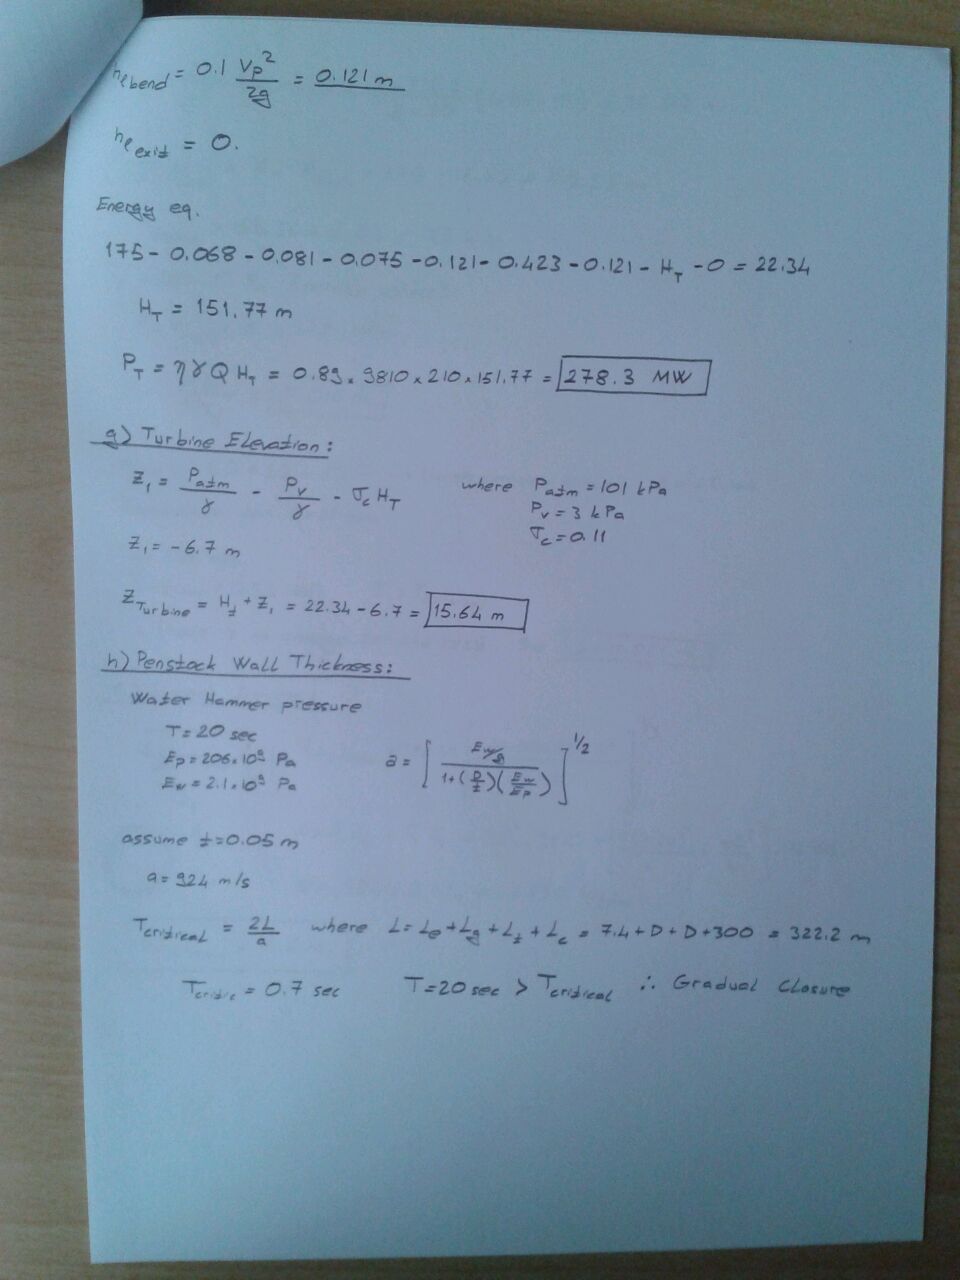 hℓ bend = 0.1 Vp²/2g = 0.121 m
hℓ exit = 0.
Energy eq.
175 - 0.068 - 0.081 - 0.075 - 0.121 - 0.423 - 0.121 - H_T - 0 = 22.34
H_T = 151.77 m
P_T = η γ Q H_T = 0.89 × 9810 × 210 × 151.77 = 278.3 MW
g) Turbine Elevation:
Z₁ = P_atm/γ - P_v/γ - σ_c H_T where P_atm = 101 kPa
P_v = 3 kPa
σ_c = 0.11
Z₁ = -6.7 m
Z_Turbine = H_t + Z₁ = 22.34 - 6.7 = 15.64 m
h) Penstock Wall Thickness:
Water Hammer pressure
T = 20 sec
E_p = 206×10⁹ Pa a = [ (E_w/ρ) / (1 + (D/t)(E_w/E_p)) ]^1/2
E_w = 2.1×10⁹ Pa
assume t = 0.05 m
a = 924 m/s
T_critical = 2L/a where L = L_e + L_g + L_t + L_c = 7.4 + D + D + 300 = 322.2 m
T_critic = 0.7 sec T = 20 sec > T_critical ∴ Gradual Closure